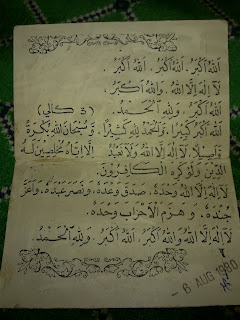 اَللهُ اَكْبَرُ، اَللهُ اَكْبَرُ، اَللهُ اَكْبَرُ،
لَآ اِلٰهَ اِلَّا اللهُ، وَاللهُ اَكْبَرُ،
اَللهُ اَكْبَرُ، وَلِلّٰهِ الْحَمْدُ. (٣ كالي)
اَللهُ اَكْبَرُ كَبِيْرًا، وَالْحَمْدُ لِلّٰهِ كَثِيْرًا، وَسُبْحَانَ اللهِ بُكْرَةً
وَاَصِيْلًا، لَآ اِلٰهَ اِلَّا اللهُ وَلَا نَعْبُدُ اِلَّا اِيَّاهُ مُخْلِصِيْنَ لَهُ
الدِّيْنَ وَلَوْ كَرِهَ الْكَافِرُوْنَ.
لَآ اِلٰهَ اِلَّا اللهُ وَحْدَهُ، صَدَقَ وَعْدَهُ، وَنَصَرَ عَبْدَهُ، وَاَعَزَّ
جُنْدَهُ، وَهَزَمَ الْاَحْزَابَ وَحْدَهُ.
لَآ اِلٰهَ اِلَّا اللهُ وَاللهُ اَكْبَرُ، اَللهُ اَكْبَرُ، وَلِلّٰهِ الْحَمْدُ.
- 6 AUG 1980